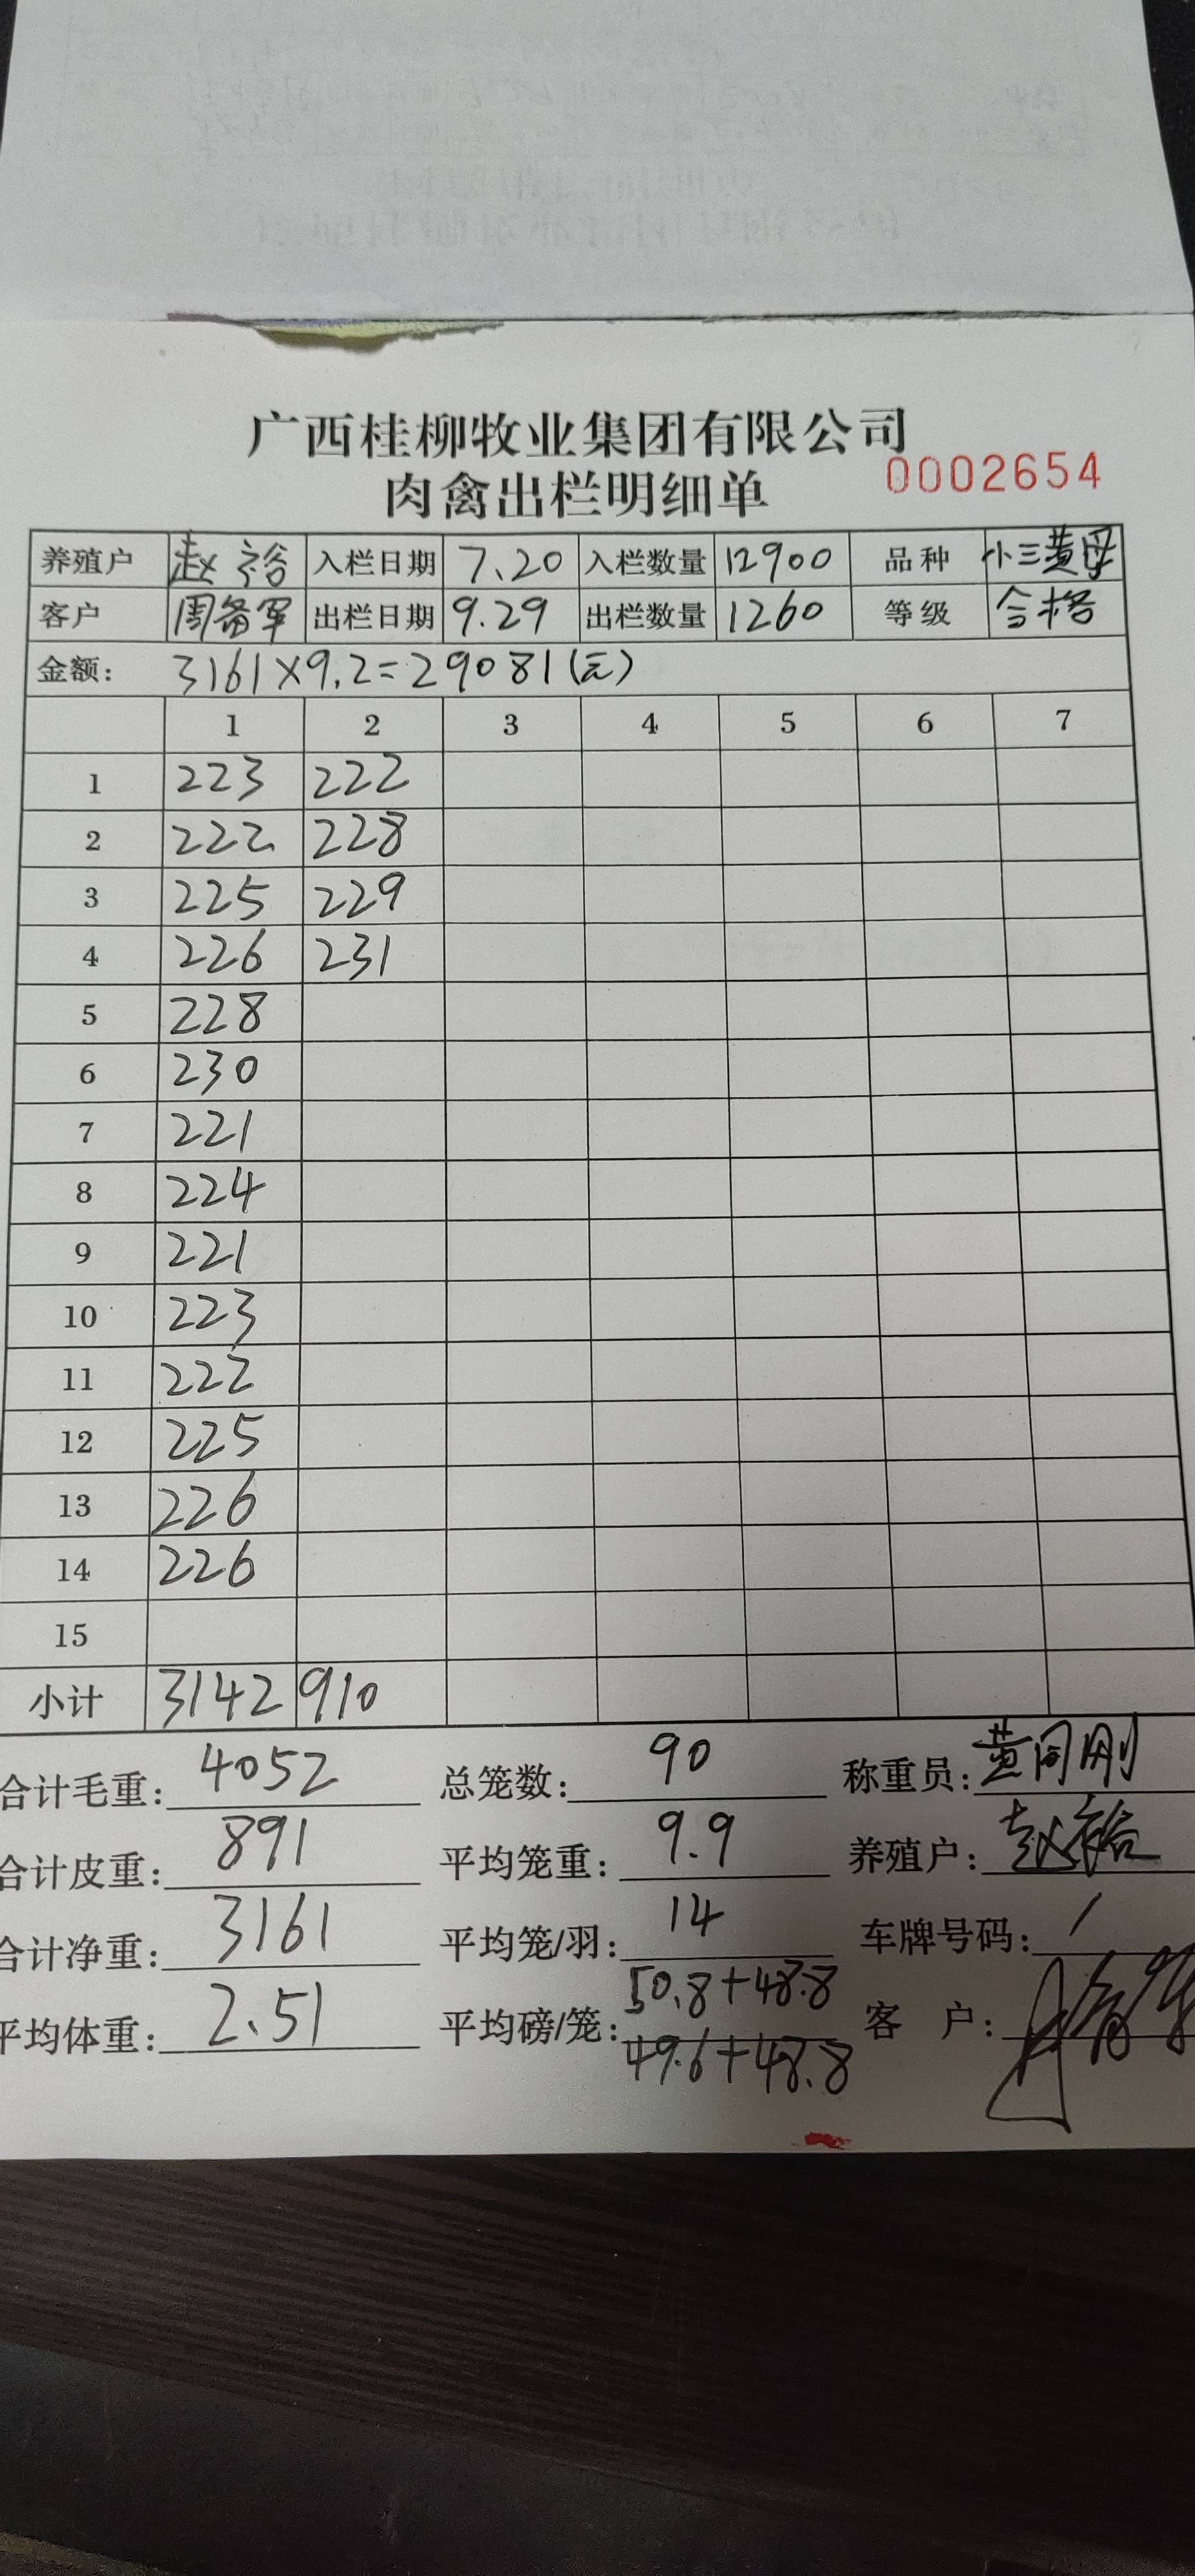 广西桂柳牧业集团有限公司
肉禽出栏明细单 0002654
养殖户 赵裕 入栏日期 7.20 入栏数量 12900 品种 小三黄母
客户 周备军 出栏日期 9.29 出栏数量 1260 等级 合格
金额: 3161×9.2=29081(元)
1 2 3 4 5 6 7
1 223 222
2 222 228
3 225 229
4 226 231
5 228
6 230
7 221
8 224
9 221
10 223
11 222
12 225
13 226
14 226
15
小计 3142 910
合计毛重: 4052 总笼数: 90 称重员: 黄同刚
合计皮重: 891 平均笼重: 9.9 养殖户: 赵裕
合计净重: 3161 平均笼/羽: 14 车牌号码: /
平均体重: 2.51 平均磅/笼: 50.8+48.8 客户:
49.6+48.8